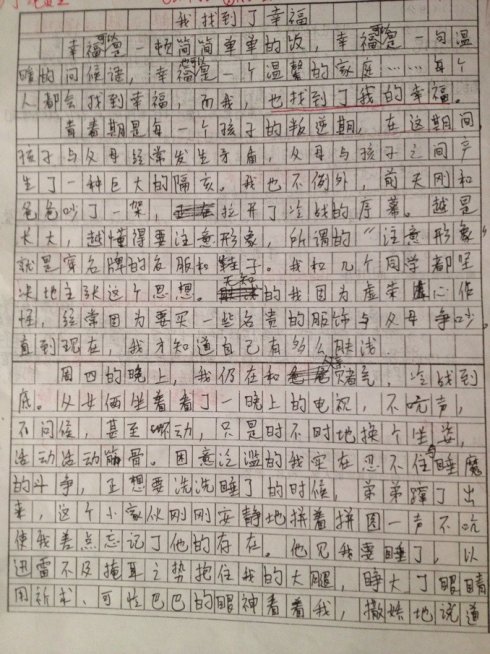 我找到了幸福
幸福可能是一顿简简单单的饭，幸福可能是一句温
暖的问候语，幸福也可能是一个温馨的家庭……每个
人都会找到幸福，而我，也找到了我的幸福。
青春期是每一个孩子的叛逆期，在这期间，
孩子与父母经常发生矛盾，父母与孩子之间产
生了一种巨大的隔亥。我也不例外，前天刚和
爸爸吵了一架，拉开了冷战的序幕。越是
长大，越懂得要注意形象，所谓的“注意形象”
就是穿名牌的衣服和鞋子。我和几个同学都坚
决地主张这个思想。无知的我因为虚荣心作
怪，经常因为要买一些名贵的服饰与父母争吵。
直到现在，我才知道自己有多么肤浅。
周四的晚上，我仍在和赌气，冷战到
底。父女俩坐着看了一晚上的电视，不吭声，
不问候，甚至动，只是时不时地换个坐姿，
活动活动筋骨。困意泛滥的我实在忍不住与睡魔
的斗争，正想要洗洗睡了的时候，弟弟蹿了出
来，这个小家伙刚刚安静地拼着拼图一声不吭
使我差点忘记了他的存在。他见我要睡了，以
迅雷不及掩耳之势抱住我的大腿，睁大了眼睛
用祈求、可怜巴巴的眼神看着我，撒娇地说道